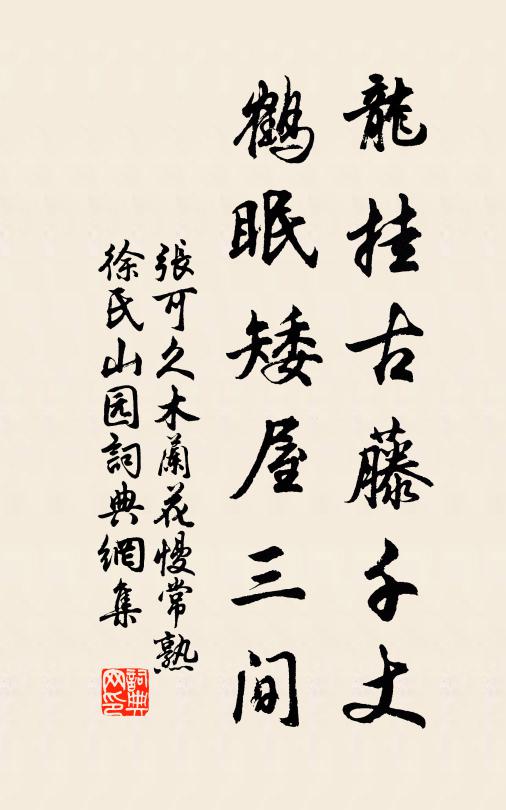 龍挂古藤千丈
鶴眠矮屋三间
張可久木蘭花慢常熟
徐氏山园詞典網集
詞典网印